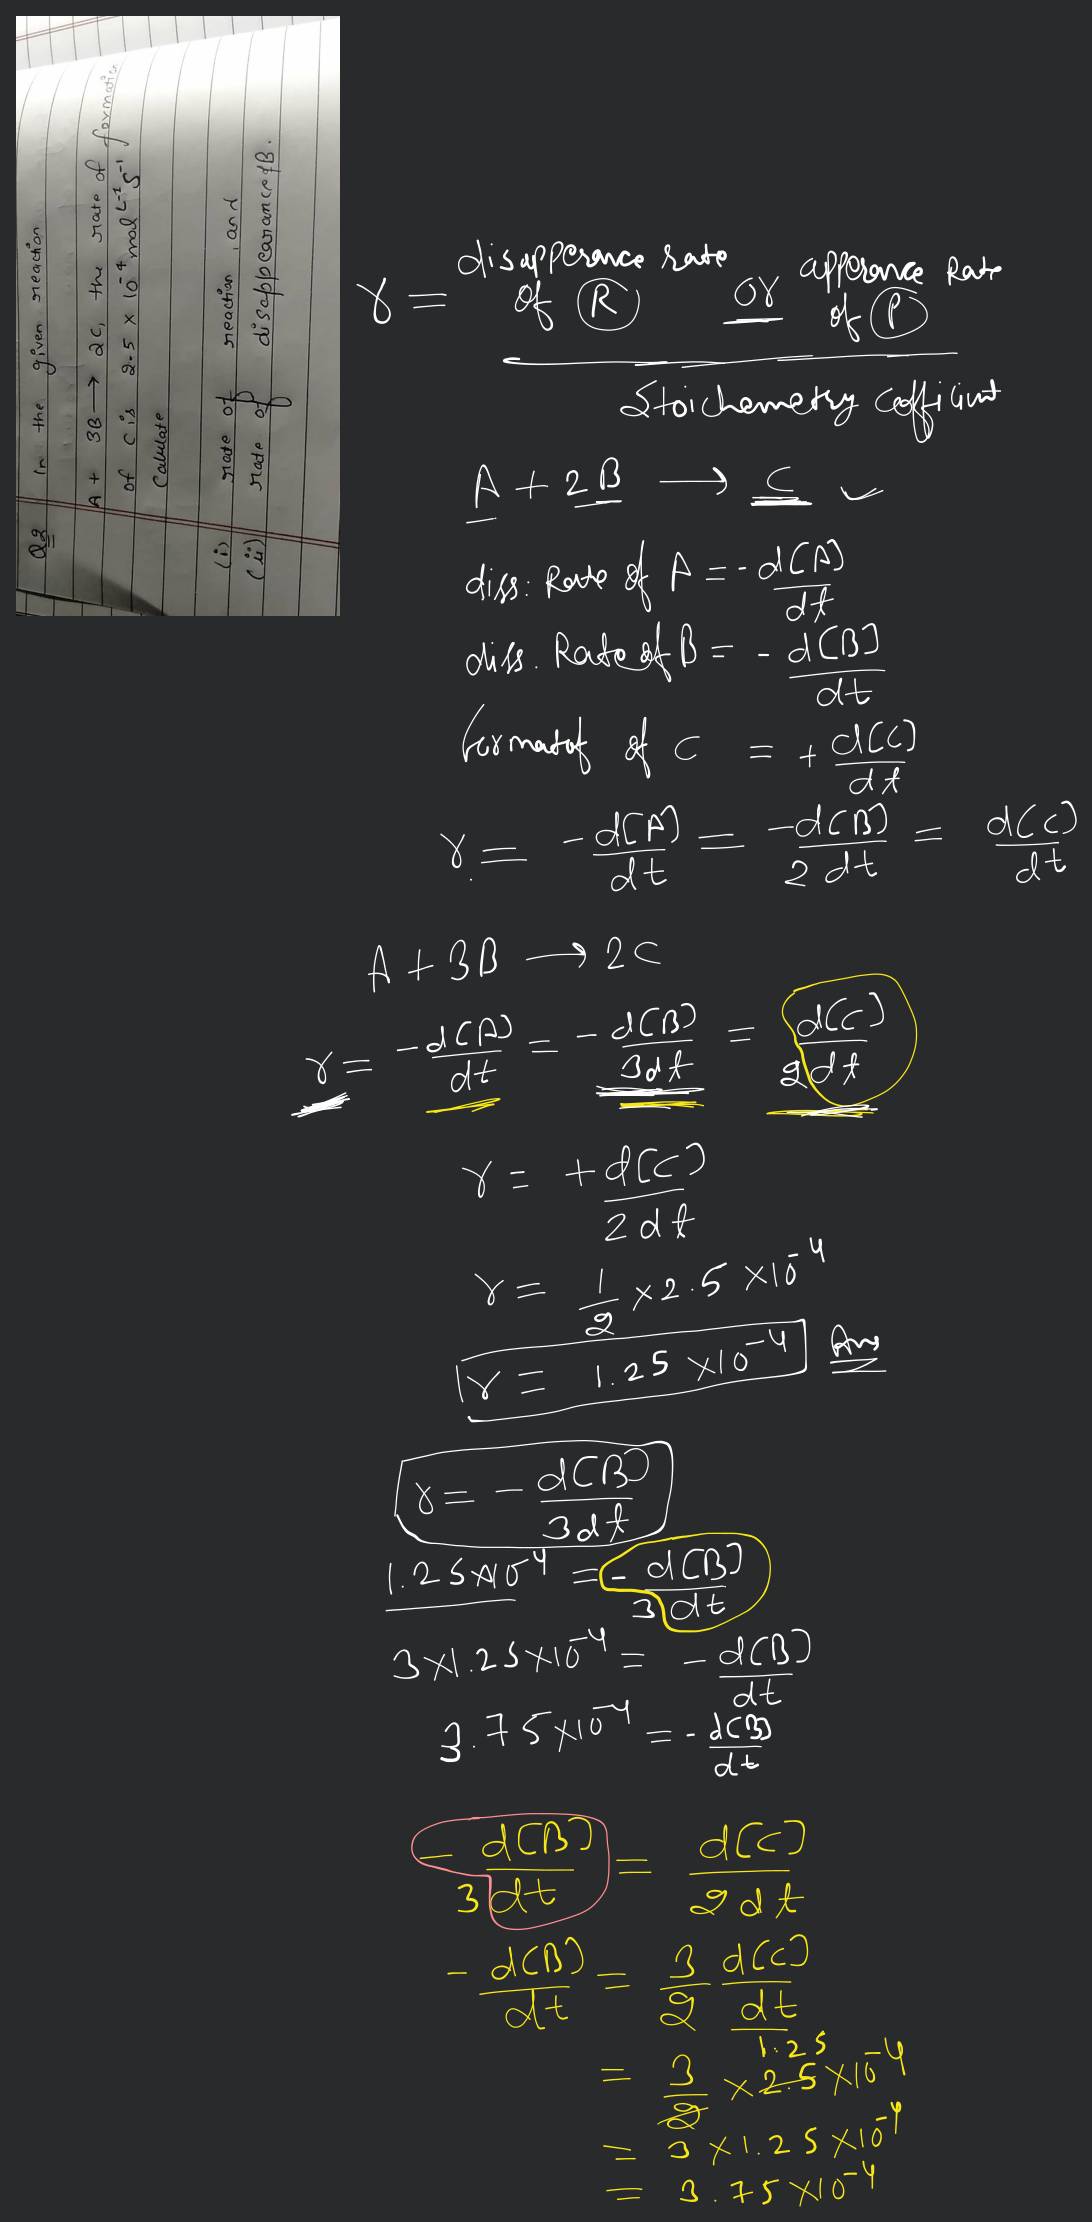 Q2 In the given reaction
A + 3B → 2C, the rate of formation
of C is 2.5 × 10⁻⁴ mol L⁻¹ S⁻¹
Calulate
(i) rate of reaction, and
(ii) rate of disappearance of B.
r = disapperance rate of (R) or apperance Rate of (P)
Stoichemetry Cofficient
A + 2B → C ✓
diss: Rate of A = - d[A]/dt
diss. Rate of B = - d[B]/dt
formatof of C = + d[C]/dt
r = -d[A]/dt = -d[B]/2dt = d[C]/dt
A + 3B → 2C
r = -d[A]/dt = -d[B]/3dt = d[C]/2dt
r = +d[C]/2dt
r = 1/2 × 2.5 × 10⁻⁴
r = 1.25 × 10⁻⁴ Ans
r = - d[B]/3dt
1.25×10⁻⁴ = - d[B]/3dt
3×1.25×10⁻⁴ = - d[B]/dt
3.75×10⁻⁴ = - d[B]/dt
- d[B]/3dt = d[C]/2dt
- d[B]/dt = 3/2 d[C]/dt
1.25
= 3/2 × 2.5 × 10⁻⁴
= 3 × 1.25 × 10⁻⁴
= 3.75 × 10⁻⁴